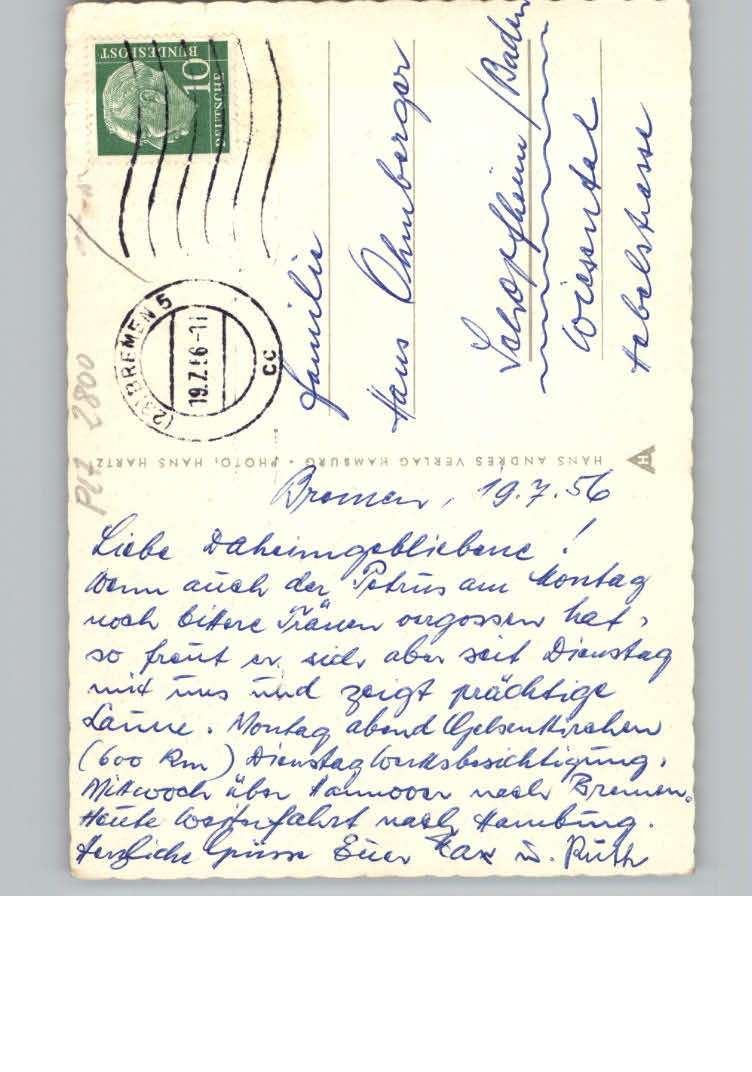 DEUTSCHE
BUNDESPOST
10
(23) BREMEN 5
19.7.56-11
cc
PLZ 2800
Familie
Hans Ohnberger
Schopfheim / Baden
Wiesental
Hebelstrasse
HANS ANDRES VERLAG HAMBURG • PHOTO: HANS HARTZ
H
Bremen, 19.7.56
Liebe Daheimgebliebene!
Wenn auch der Petrus am Montag
noch bittere Tränen vergossen hat,
so freut er sich aber seit Dienstag
mit uns und zeigt prächtige
Laune. Montag abend Gelsenkirchen
(600 km) Dienstag Werksbesichtigung.
Mittwoch über Hannover nach Bremen.
Heute Weiterfahrt nach Hamburg.
Herzliche Grüsse Euer Max u. Ruth